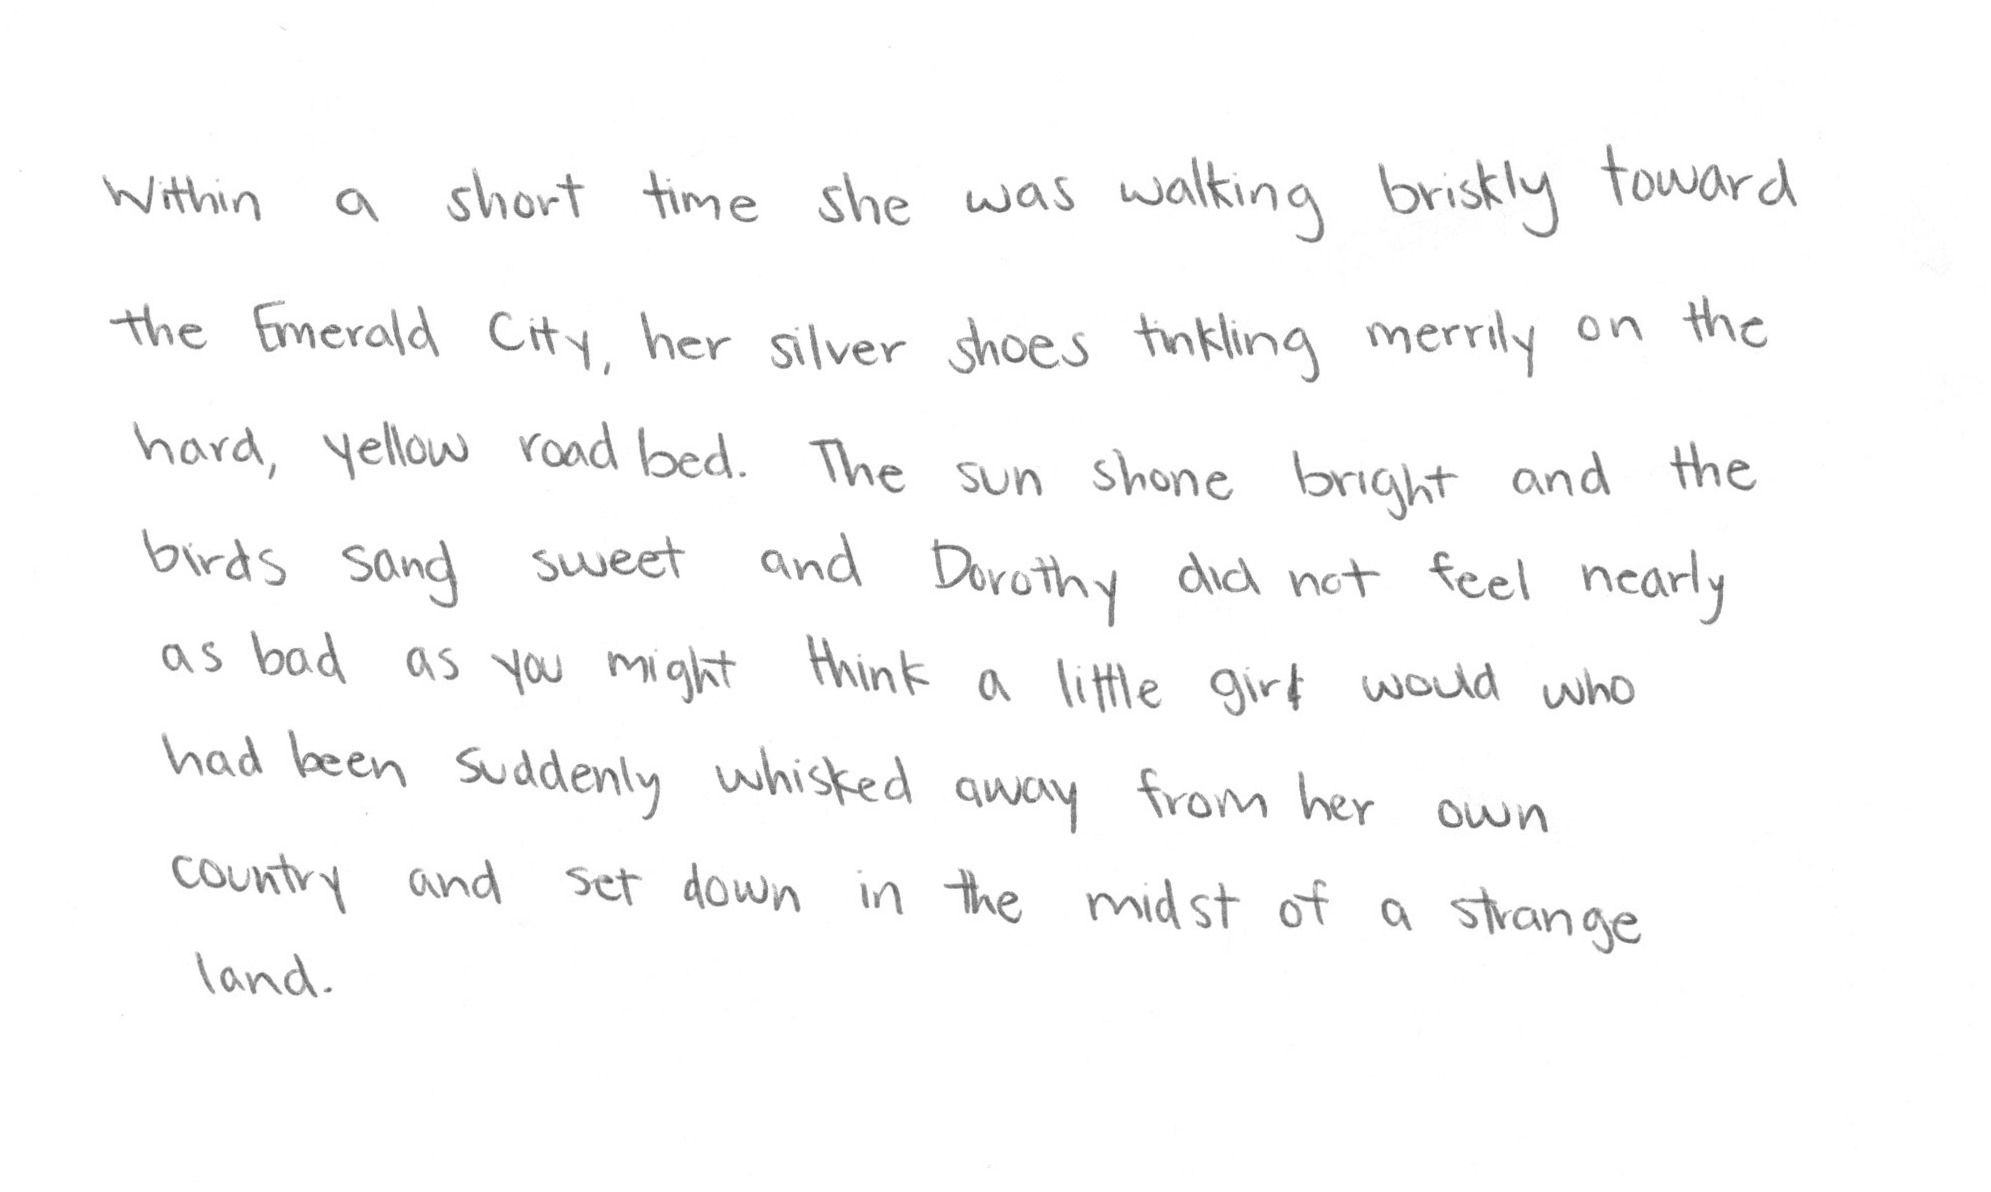 Within a short time she was walking briskly toward
the Emerald City, her silver shoes tinkling merrily on the
hard, yellow road bed. The sun shone bright and the
birds sang sweet and Dorothy did not feel nearly
as bad as you might think a little girl would who
had been suddenly whisked away from her own
country and set down in the midst of a strange
land.